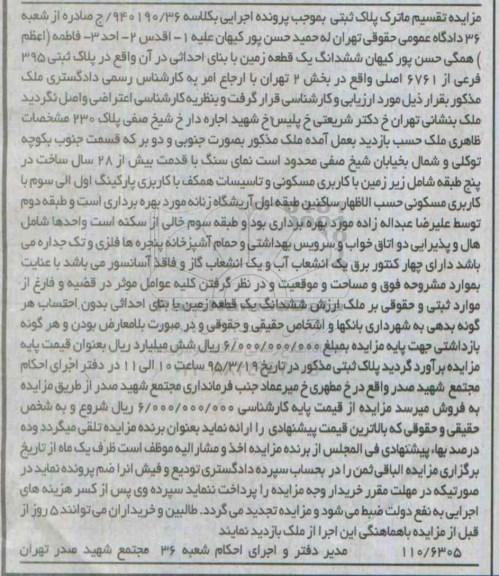 مزایده تقسیم ماترک پلاک ثبتی بموجب پرونده اجرایی بکلاسه ۹۴۰۱۹۰/۳۶ ج صادره از شعبه
۳۶ دادگاه عمومی حقوقی تهران له حمید حسن پور کیهان علیه ۱- اقدس ۲- احد ۳- فاطمه (اعظم
) همگی حسن پور کیهان ششدانگ یک قطعه زمین با بنای احداثی در آن واقع در پلاک ثبتی ۳۹۵
فرعی از ۶۷۶۱ اصلی واقع در بخش ۲ تهران با ارجاع امر به کارشناس رسمی دادگستری ملک
مذکور بقرار ذیل مورد ارزیابی و کارشناسی قرار گرفت و بنظریه کارشناسی اعتراضی واصل نگردید
ملک بنشانی تهران خ دکتر شریعتی خ پلیس خ شهید اجاره دار خ شیخ صفی پلاک ۲۳۰ مشخصات
ظاهری ملک حسب بازدید بعمل آمده ملک مذکور بصورت جنوبی و دو بر که قسمت جنوب بکوچه
توکلی و شمال بخیابان شیخ صفی محدود است نمای سنگ با قدمت بیش از ۲۸ سال ساخت در
پنج طبقه شامل زیر زمین با کاربری مسکونی و تاسیسات همکف با کاربری پارکینگ اول الی سوم با
کاربری مسکونی حسب الاظهار ساکنین طبقه اول آریشگاه زنانه مورد بهره برداری است و طبقه دوم
توسط علیرضا عبداله زاده مورد بهره برداری بود و طبقه سوم خالی از سکنه است واحدها شامل
هال و پذیرایی دو اتاق خواب و سرویس بهداشتی و حمام آشپزخانه پنجره ها فلزی و تک جداره می
باشد دارای چهار کنتور برق یک انشعاب آب و یک انشعاب گاز و فاقد آسانسور می باشد با عنایت
بموارد مشروحه فوق و مساحت و موقعیت و در نظر گرفتن کلیه عوامل موثر در قضیه و فارغ از
موارد ثبتی و حقوقی بر ملک ارزش ششدانگ یک قطعه زمین با بنای احداثی بدون احتساب هر
گونه بدهی به شهرداری بانکها و اشخاص حقیقی و حقوقی و در صورت بلامعارض بودن و هر گونه
بازداشتی جهت پایه مزایده بمبلغ ۶/۰۰۰/۰۰۰/۰۰۰ ریال شش میلیارد ریال بعنوان قیمت پایه
مزایده برآورد گردید پلاک ثبتی مذکور در تاریخ ۹۵/۳/۱۹ ساعت ۱۰ الی ۱۱ در دفتر اجرای احکام
مجتمع شهید صدر واقع در خ مطهری خ میرعماد جنب فرمانداری مجتمع شهید صدر از طریق مزایده
به فروش میرسد مزایده از قیمت پایه کارشناسی ۶/۰۰۰/۰۰۰/۰۰۰ ریال شروع و به شخص
حقیقی و حقوقی که بالاترین قیمت پیشنهادی را ارائه نماید بعنوان برنده مزایده تلقی میگردد وده
درصد بهاء پیشنهادی فی المجلس از برنده مزایده اخذ و مشارالیه موظف است ظرف یک ماه از تاریخ
برگزاری مزایده الباقی ثمن را در بحساب سپرده دادگستری تودیع و فیش انرا ضم پرونده نماید در
صورتیکه در مهلت مقرر خریدار وجه مزایده را پرداخت ننماید سپرده وی پس از کسر هزینه های
اجرایی به نفع دولت ضبط می شود و مزایده تجدید می گردد. طالبین و خریداران می توانند ۵ روز از
قبل از مزایده باهماهنگی این اجرا از ملک بازدید نمایند
۱۱۰/۶۳۰۵ مدیر دفتر و اجرای احکام شعبه ۳۶ مجتمع شهید صدر تهران